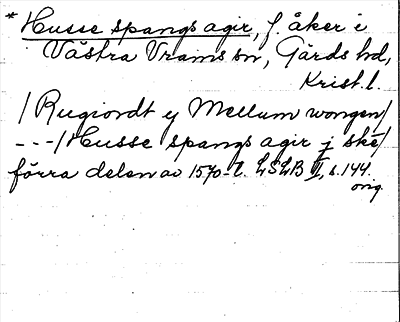 * Husse spangs agir, f. åker i
Västra Vrams sn, Gärds hd,
Krist. l.
/ Rugiordt ej Mellum wongen/
---/ Husse spangs agir j ske/
förra delen av 1570-t. LSLB II, s. 144.
orig.